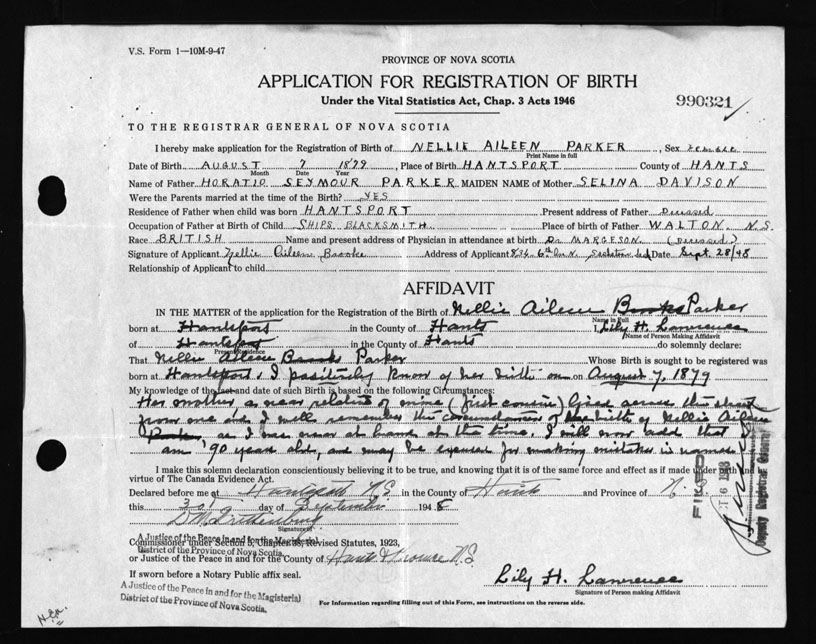 V.S. Form 1—10M-9-47
PROVINCE OF NOVA SCOTIA
APPLICATION FOR REGISTRATION OF BIRTH
Under the Vital Statistics Act, Chap. 3 Acts 1946
990321
TO THE REGISTRAR GENERAL OF NOVA SCOTIA
I hereby make application for the Registration of Birth of NELLIE AILEEN PARKER, Sex Female
Print Name in full
Date of Birth AUGUST 7 1879 Place of Birth HANTSPORT County of HANTS
Month Date Year
Name of Father HORATIO SEYMOUR PARKER MAIDEN NAME of Mother SELINA DAVISON
Were the Parents married at the time of the Birth? YES
Residence of Father when child was born HANTSPORT Present address of Father Deceased
Occupation of Father at Birth of Child SHIPS BLACKSMITH Place of birth of Father WALTON N.S.
Race BRITISH Name and present address of Physician in attendance at birth Dr MARGESON (Deceased)
Signature of Applicant Nellie Aileen Brooks Address of Applicant 834 6th Ave N. Saskatoon Date Sept. 28/48
Relationship of Applicant to child
AFFIDAVIT
IN THE MATTER of the application for the Registration of the Birth of Nellie Aileen Brooks Parker
Name in Full
born at Hantsport in the County of Hants I, Lily H. Lawrence
Name of Person Making Affidavit
of Hantsport in the County of Hants do solemnly declare:
Present Residence
That Nellie Aileen Brooks Parker Whose Birth is sought to be registered was
born at Hantsport. I positively know of her birth on August 7, 1879
My knowledge of the fact and date of such Birth is based on the following Circumstances:
Her mother, a near relative of mine (first cousin) lived across the street
from me and I well remember the circumstances of the birth of Nellie Aileen
Parker, as I was near at hand at the time. I will now add that
am '90 years old, and may be excused for making mistakes in names
I make this solemn declaration conscientiously believing it to be true, and knowing that it is of the same force and effect as if made under oath and
virtue of The Canada Evidence Act.
Declared before me at Hantsport N.S. in the County of Hants and Province of N.
this 30 day of September 1948
Signature of
Commissioner under Section 5, Chapter 38, Revised Statutes, 1923,
A Justice of the Peace in and for the Magisterial
District of the Province of Nova Scotia.
or Justice of the Peace in and for the County of Hants Province N.S.
If sworn before a Notary Public affix seal.
Lily H. Lawrence
Signature of Person making Affidavit
A Justice of the Peace in and for the Magisterial
District of the Province of Nova Scotia.
For Information regarding filling out of this Form, see instructions on the reverse side.
FILED
Deputy Registrar General